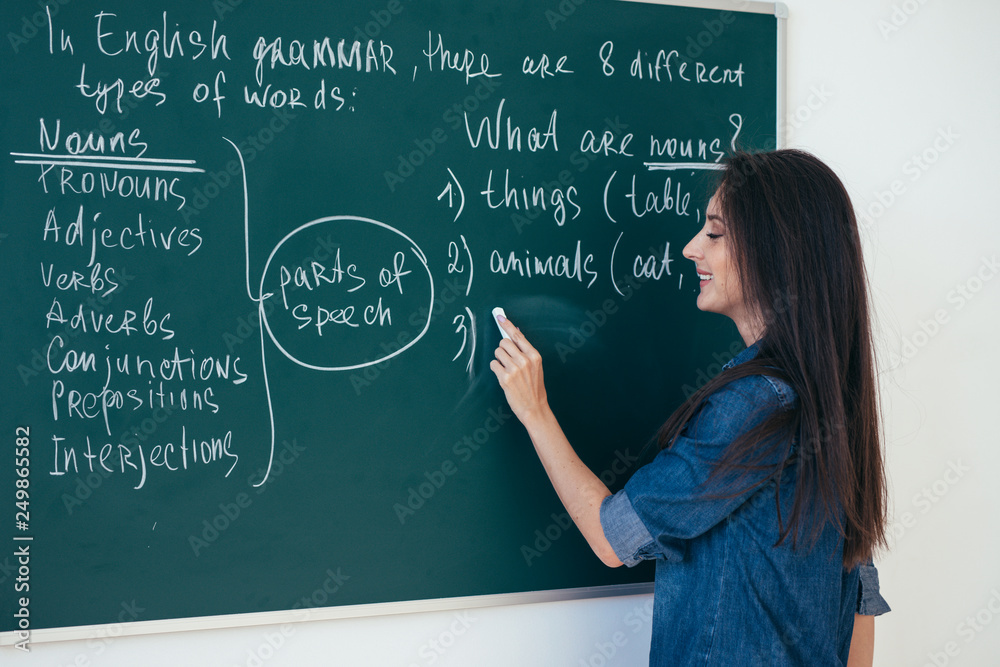 In English grammar, there are 8 different
types of words:
Nouns
Pronouns
Adjectives
Verbs
Adverbs
Conjunctions
Prepositions
Interjections
parts of
speech
What are nouns?
1) things (table,
2) animals (cat,
3)
Adobe Stock | #249865582